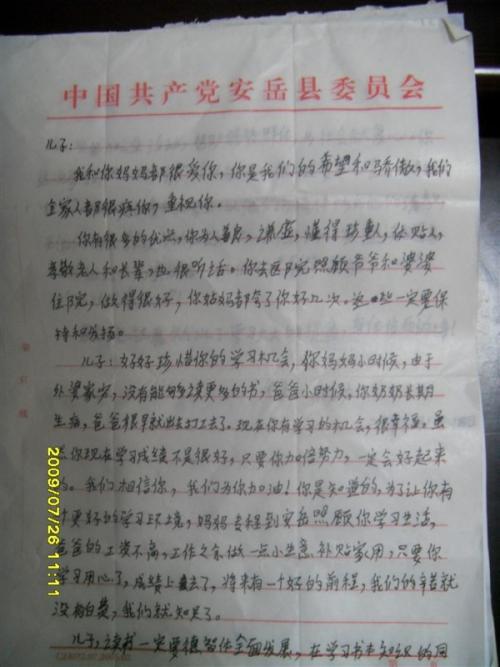 中国共产党安岳县委员会
儿子：
我和你妈妈都很爱你，你是我们的希望和骄傲，我们
全家人都很疼你，重视你。
你有很多的优点，你为人善良，谦虚，懂得珍重人，体贴人，
孝敬老人和长辈，也很听话。你去医院照顾爷爷和婆婆
住院，做得很好，你姑妈都夸了你好几次。这些一定要保
持和发扬。
儿子：好好珍惜你的学习机会，你妈妈小时候，由于
外婆家穷，没有能够读更多的书，爸爸小时候，你奶奶长期
生病，爸爸很早就出去打工去了。现在你有学习的机会，很幸福，虽
然你现在学习成绩不是很好，只要你加倍努力，一定会好起来
的。我们相信你，我们为你加油！你是知道的，为了让你有
个更好的学习环境，妈妈专程到安岳照顾你学习生活，
爸爸的工资不高，工作之余做一点小生意补贴家用，只要你
学习用心了，成绩上去了，将来有一个好的前程，我们的辛苦就
没有白费，我们就知足了。
儿子，读书一定要德智体全面发展，在学习书本知识的同
2009/07/26 11:11